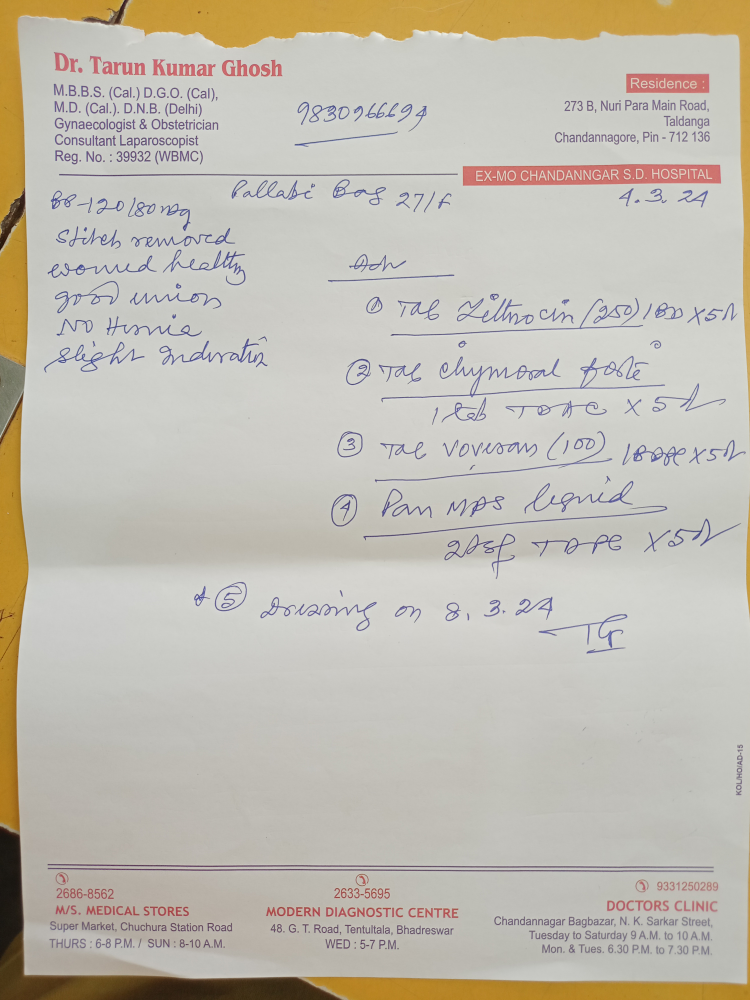 Dr. Tarun Kumar Ghosh
M.B.B.S. (Cal.) D.G.O. (Cal),
M.D. (Cal.). D.N.B. (Delhi)
Gynaecologist & Obstetrician
Consultant Laparoscopist
Reg. No. : 39932 (WBMC)
9830966694
Residence :
273 B, Nuri Para Main Road,
Taldanga
Chandannagore, Pin - 712 136
EX-MO CHANDANNGAR S.D. HOSPITAL
Pallabi Bag 27/F
4.3.24
BP-120/80
Stitch removed
wound healthy
good union
No Hernia
Slight Induration
Adv
① Tab Zithrocin (250) 1BD X 5d
② Tab Chymoral forte
1 tab TDAC X 5d
③ Tab Voveran (100) X 5d
④ Pan MPS liquid
2tsf TDPC X 5d
⑤ Dressing on 8.3.24
TG
KOL/HO/AD-15
2686-8562
M/S. MEDICAL STORES
Super Market, Chuchura Station Road
THURS : 6-8 P.M. / SUN : 8-10 A.M.
2633-5695
MODERN DIAGNOSTIC CENTRE
48. G. T. Road, Tentultala, Bhadreswar
WED : 5-7 P.M.
9331250289
DOCTORS CLINIC
Chandannagar Bagbazar, N. K. Sarkar Street,
Tuesday to Saturday 9 A.M. to 10 A.M.
Mon. & Tues. 6.30 P.M. to 7.30 P.M.